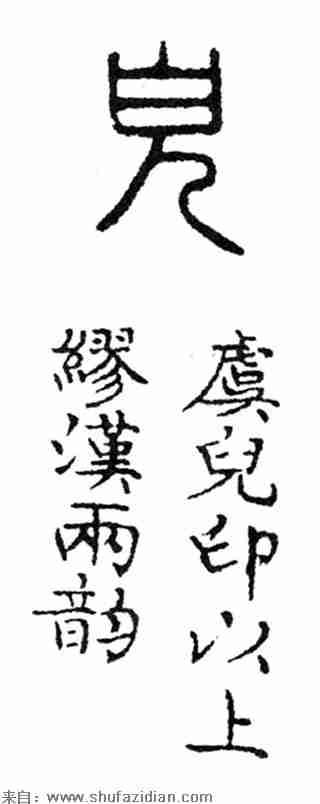 兒
虞兒印以上
繆漢兩韵
来自：www.shufazidian.com